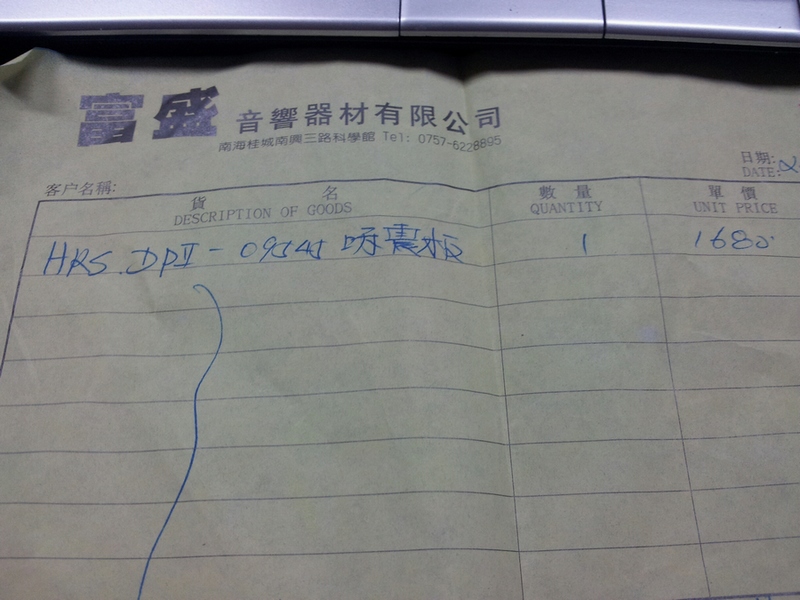 富盛 音響器材有限公司
南海桂城南興三路科學館 Tel: 0757-6228895
日期:
DATE:
客户名稱:
貨 名 數 量 單 價
DESCRIPTION OF GOODS QUANTITY UNIT PRICE
HRS.DPII-09545 吸震板 1 1680